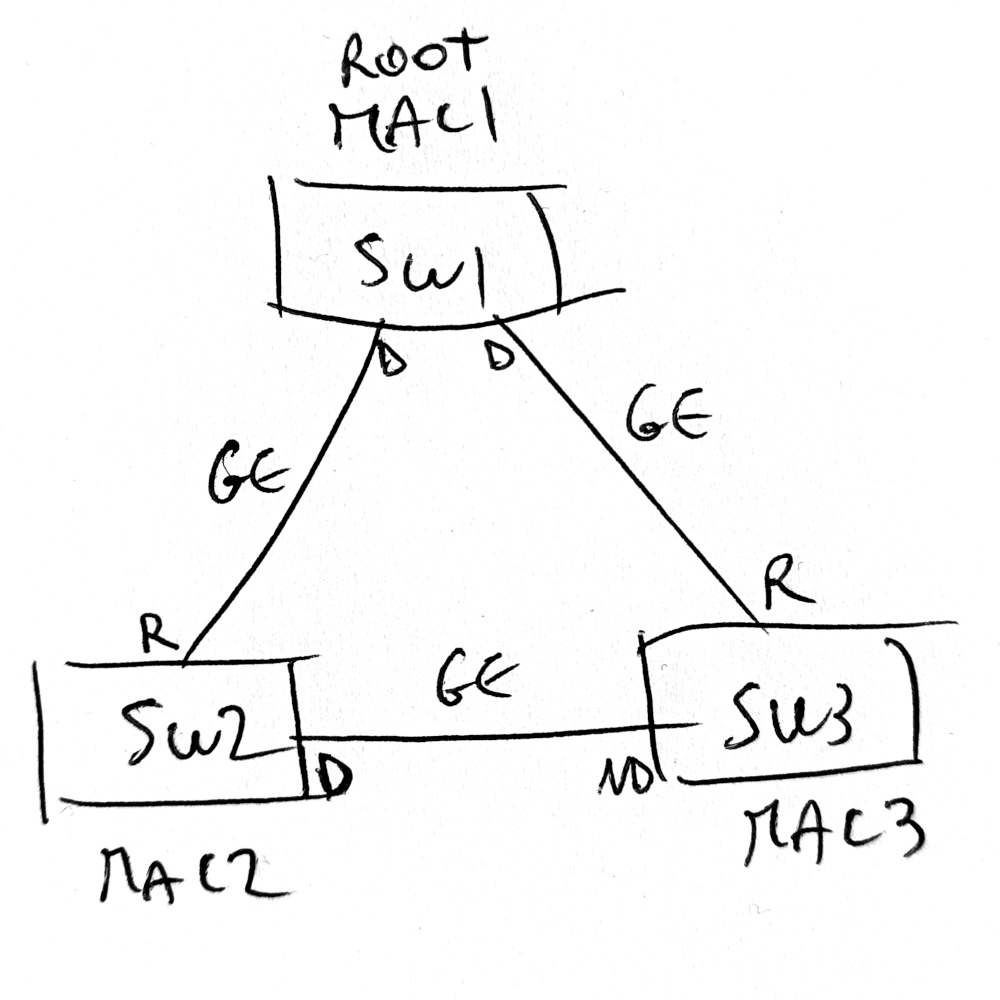 ROOT
MAC1
SW1
D D
GE
GE
R
R
GE
SW2
SW3
D
ND
MAC2
MAC3